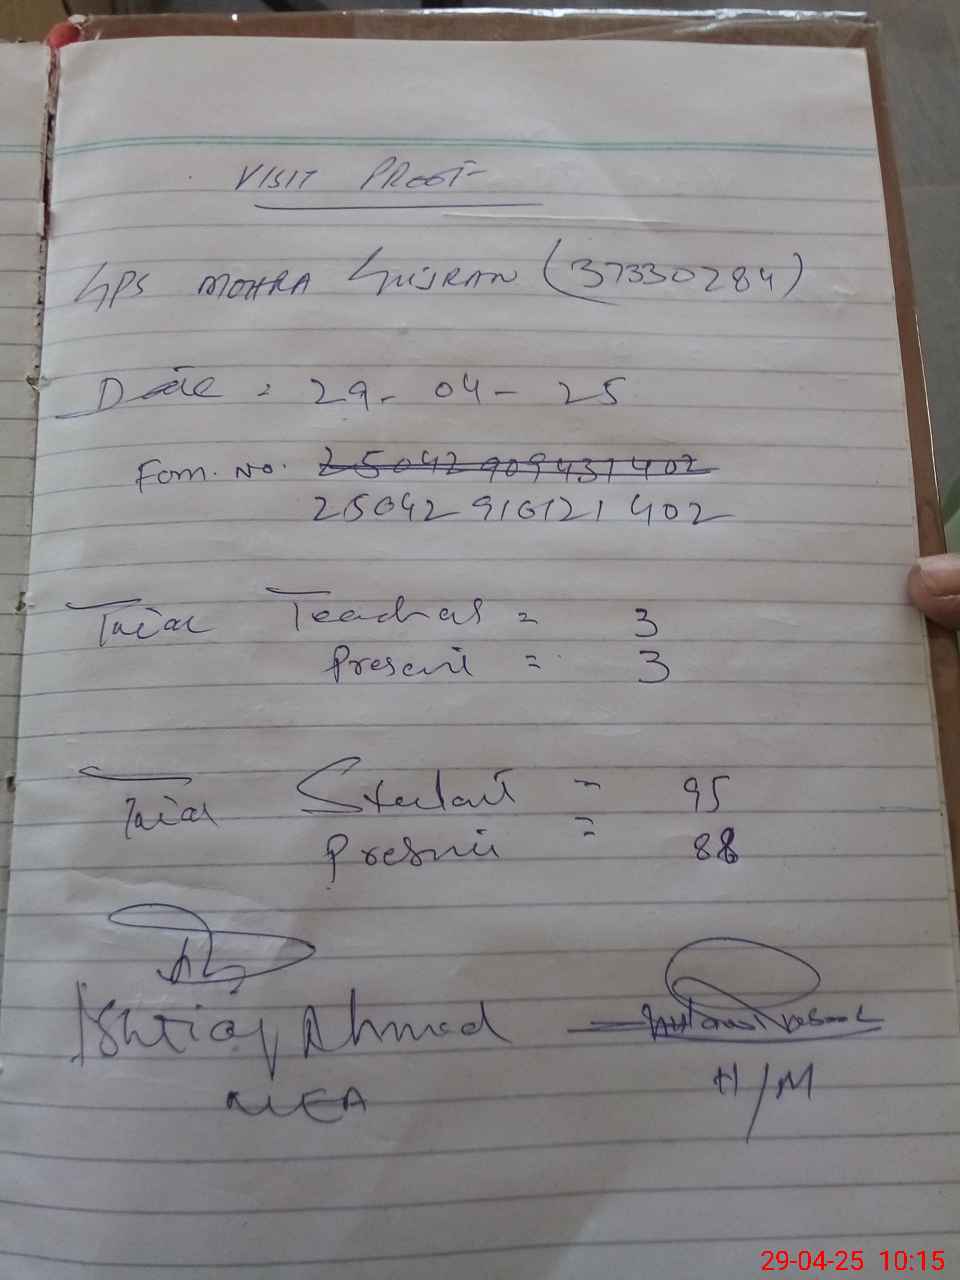 VISIT PROOF
GPS MOHRA GUJRAN (37330284)
Date : 29-04-25
Form. No. 25042909431402
25042910121402
Total Teachers = 3
Present = 3
Total Student = 95
Present = 88
Ishtiaq Ahmad
MEA
H/M
29-04-25 10:15